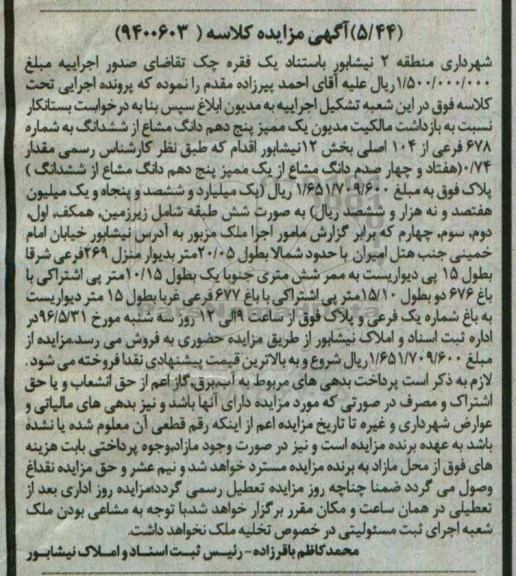 (۵/۴۴)آگهی مزایده کلاسه ( ۹۴۰۰۶۰۳)
شهرداری منطقه ۲ نیشابور باستناد یک فقره چک تقاضای صدور اجراییه مبلغ
۱/۵۰۰/۰۰۰/۰۰۰ریال علیه آقای احمد پیرزاده مقدم را نموده که پرونده اجرایی تحت
کلاسه فوق در این شعبه تشکیل اجراییه به مدیون ابلاغ سپس بنا به درخواست بستانکار
نسبت به بازداشت مالکیت مدیون یک ممیز پنج دهم دانگ مشاع از ششدانگ به شماره
۶۷۸ فرعی از ۱۰۴ اصلی بخش ۱۲نیشابور اقدام که طبق نظر کارشناس رسمی مقدار
۰/۷۴(هفتاد و چهار صدم دانگ مشاع از یک ممیز پنج دهم دانگ مشاع از ششدانگ )
پلاک فوق به مبلغ ۱/۶۵۱/۷۰۹/۶۰۰ ریال (یک میلیارد و ششصد و پنجاه و یک میلیون
هفتصد و نه هزار و ششصد ریال) به صورت شش طبقه شامل زیرزمین، همکف، اول،
دوم، سوم، چهارم که برابر گزارش مامور اجرا ملک مزبور به آدرس نیشابور خیابان امام
خمینی جنب هتل امیران با حدود شمالا بطول ۲۰/۰۵متر بدیوار منزل ۲۶۹فرعی شرقا
بطول ۱۵ پی دیواریست به ممر شش متری جنوبا یک بطول ۱۰/۱۵متر پی اشتراکی با
باغ ۶۷۶ دو بطول ۱۵/۱۰متر پی اشتراکی با باغ ۶۷۷ فرعی غربا بطول ۱۵ متر دیواریست
به باغ شماره یک فرعی و پلاک فوق از ساعت ۹الی ۱۲ روز سه شنبه مورخ ۹۶/۵/۳۱در
اداره ثبت اسناد و املاک نیشابور از طریق مزایده حضوری به فروش می رسد.مزایده از
مبلغ ۱/۶۵۱/۷۰۹/۶۰۰ ریال شروع و به بالاترین قیمت پیشنهادی نقدا فروخته می شود.
لازم به ذکر است پرداخت بدهی های مربوط به آب،برق،گاز اعم از حق انشعاب و یا حق
اشتراک و مصرف در صورتی که مورد مزایده دارای آنها باشد و نیز بدهی های مالیاتی و
عوارض شهرداری و غیره تا تاریخ مزایده اعم از اینکه رقم قطعی آن معلوم شده یا نشده
باشد به عهده برنده مزایده است و نیز در صورت وجود مازاد،وجوه پرداختی بابت هزینه
های فوق از محل مازاد به برنده مزایده مسترد خواهد شد و نیم عشر و حق مزایده نقداغ
وصول می گردد ضمنا چناچه روز مزایده تعطیل رسمی گردد؛مزایده روز اداری بعد از
تعطیلی در همان ساعت و مکان مقرر برگزار خواهد شد.با توجه به مشاعی بودن ملک
شعبه اجرای ثبت مسئولیتی در خصوص تخلیه ملک نخواهد داشت.
محمدکاظم باقرزاده - رئیس ثبت اسناد و املاک نیشابور